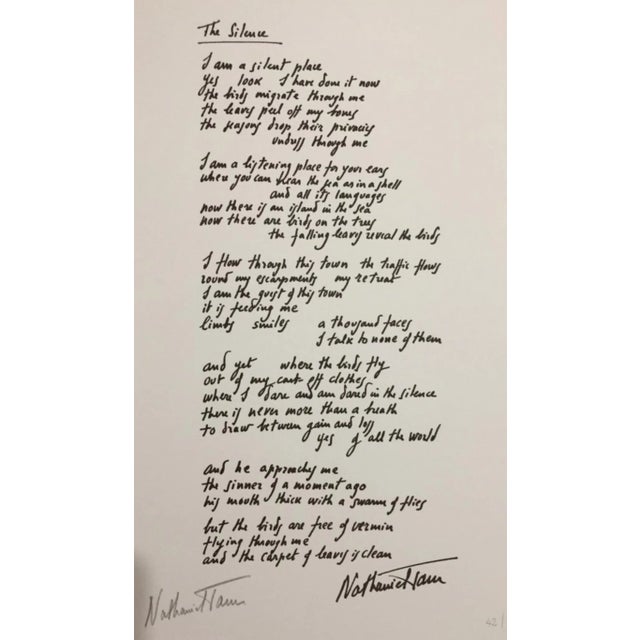 The Silence
I am a silent place
yes look I have done it now
the birds migrate through me
the leaves peel off my bones
the seasons drop their privacies
undress through me
I am a listening place for your ears
where you can hear the sea as in a shell
and all its languages
now there is an island in the sea
now there are birds on the trees
the falling leaves reveal the birds
I flow through this town the traffic flows
round my escarpments my retreat
I am the guest of this town
it is feeding me
limbs smiles a thousand faces
I talk to none of them
and yet where the birds fly
out of my cast off clothes
where I dare and am dared in the silence
there is never more than a breath
to draw between gain and loss
yes of all the world
and he approaches me
the sinner of a moment ago
his mouth thick with a swarm of flies
but the birds are free of vermin
flying through me
and the carpet of leaves is clean
Nathaniel Tarn
Nathaniel Tarn
42/